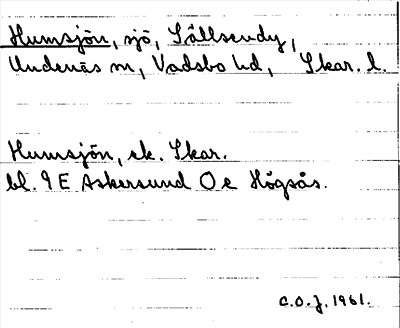 Humsjön, sjö, Sållsendy,
Undenäs sn, Vadsbo hd, Skar. l.
Humsjön, ek. Skar.
bl. 9 E Askersund O e Högsås.
C.O.J. 1961.